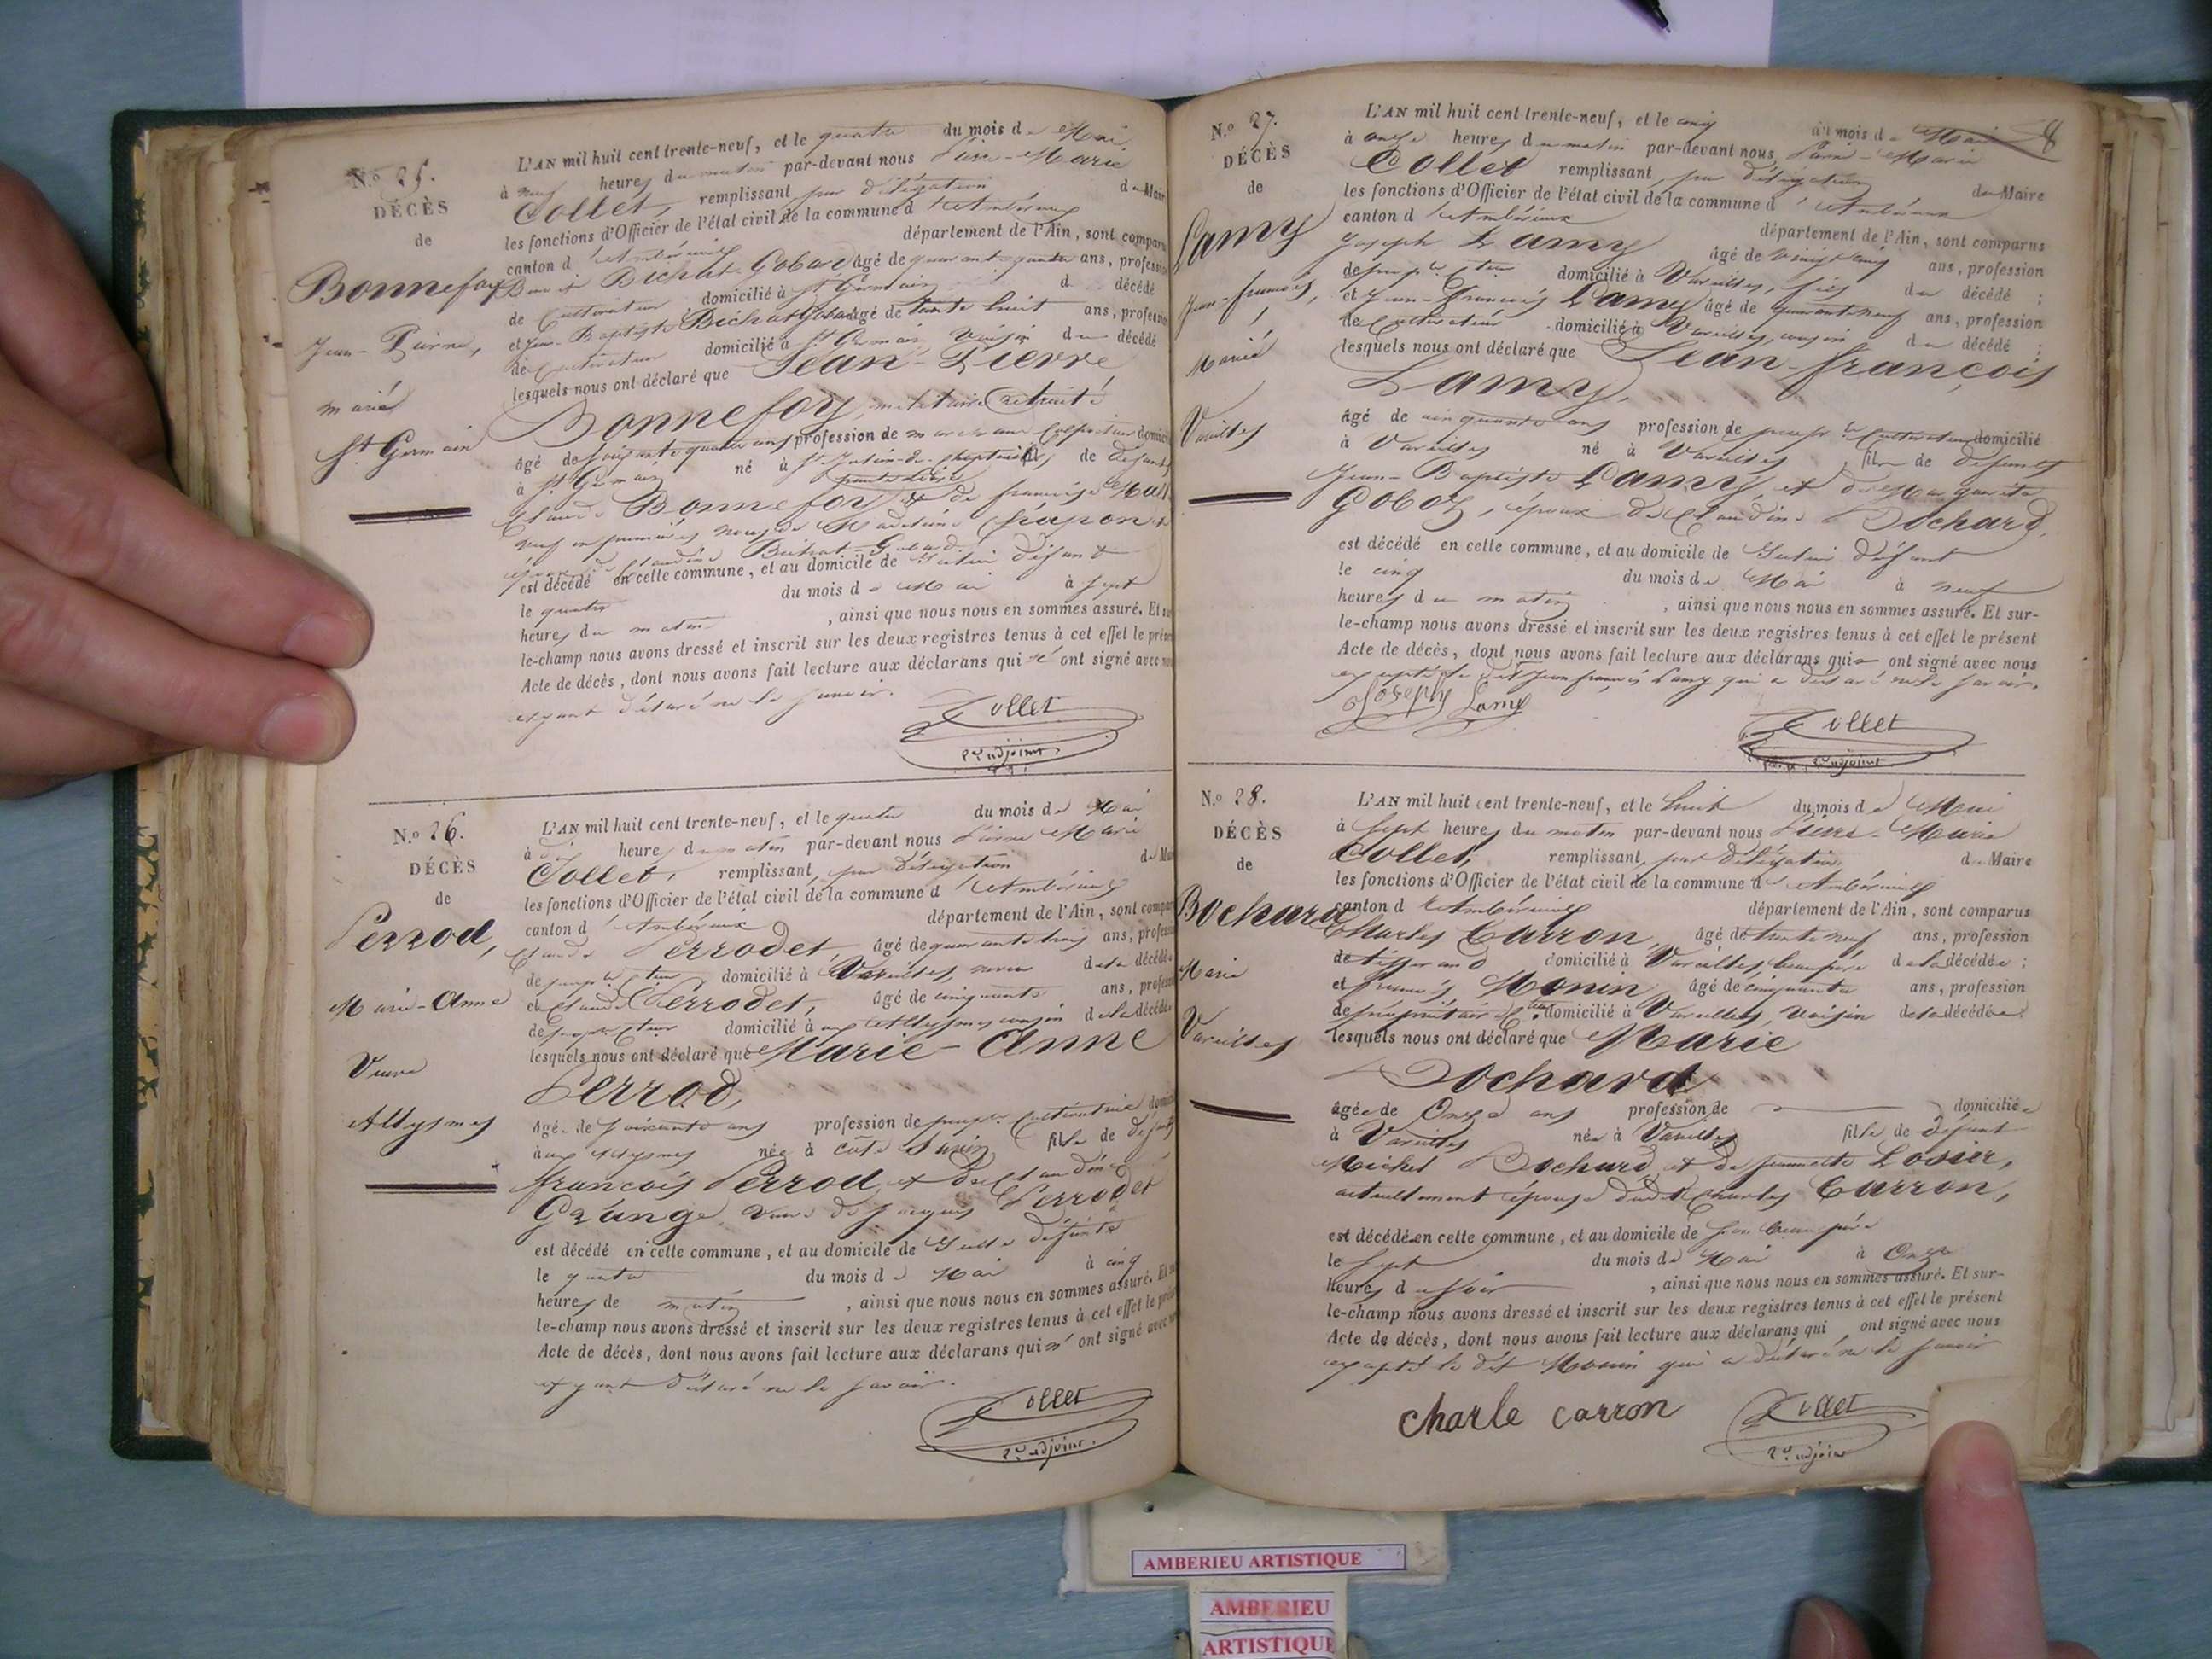 N.º 25.
DÉCÈS
de
Bonnefoy
Jean-Pierre,
marié
St Germain
L'AN mil huit cent trente-neuf, et le quatre du mois de Mai
à neuf heures du matin par-devant nous Pierre-Marie
Collet, remplissant par délégation du Maire
les fonctions d'Officier de l'état civil de la commune d'Ambérieux
canton d'Ambérieux département de l'Ain, sont comparus
Bichat-Gobard âgé de quarante quatre ans, profession
de Cultivateur domicilié à St Germain d décédé
et Jean-Baptiste Bichat Gobard âgé de trente huit ans, profession
de Cultivateur domicilié à St Germain, voisin du décédé
lesquels nous ont déclaré que Jean-Pierre
Bonnefoy, militaire retraité
âgé de soixante quatre ans profession de marchand Colporteur domicilié
à St Germain né à de défunt
Claude Bonnefoy et de françoise
veuf en premières noces de Madeleine
époux de Claudine Bichat-Gobard
est décédé en cette commune, et au domicile de Lui défunt
le quatre du mois de Mai à sept
heures du matin, ainsi que nous nous en sommes assuré. Et sur-
le-champ nous avons dressé et inscrit sur les deux registres tenus à cet effet le présent
Acte de décès, dont nous avons fait lecture aux déclarans qui n' ont signé avec nous
ayant déclaré ne le savoir.
Collet
2e adjoint.
N.º 26.
DÉCÈS
de
Perrod,
Marie-Anne
Veuve
Allysmes
L'AN mil huit cent trente-neuf, et le quatre du mois de Mai
à dix heures du matin par-devant nous Pierre Marie
Collet, remplissant par délégation du Maire
les fonctions d'Officier de l'état civil de la commune d'Ambérieux
canton d'Ambérieux département de l'Ain, sont comparus
Claude Perrodet, âgé de quarante trois ans, profession
de propre Cteur domicilié à Vareilles, neveu de la décédée
et Claude Perrodet, âgé de cinquante ans, profession
de propre Cteur domicilié à aux Allysmes cousin de la décédée
lesquels nous ont déclaré que Marie-Anne
Perrod,
âgée de soixante ans profession de propre Cultivatrice domiciliée
aux Allysmes née à côte Savin fille de défunts
françois Perrod et de Claudine
Grange veuve de Jacques Perrodet
est décédé en cette commune, et au domicile de défunte
le quatre du mois de Mai à cinq
heures de matin, ainsi que nous nous en sommes assuré. Et sur-
le-champ nous avons dressé et inscrit sur les deux registres tenus à cet effet le présent
Acte de décès, dont nous avons fait lecture aux déclarans qui n' ont signé avec nous
ayant déclaré ne le savoir.
Collet
2e adjoint.
8
N.º 27.
DÉCÈS
de
Lamy
Jean-françois,
Marié
Vareilles
L'AN mil huit cent trente-neuf, et le cinq du mois de Mai
à onze heures du matin par-devant nous Pierre-Marie
Collet remplissant par délégation du Maire
les fonctions d'Officier de l'état civil de la commune d'Ambérieux
canton d'Ambérieux département de l'Ain, sont comparus
Joseph Lamy âgé de vingt cinq ans, profession
de propre Cteur domicilié à Vareilles, fils du décédé;
et Jean-François Lamy âgé de quarante neuf ans, profession
de Cultivateur domicilié à Vareilles, cousin du décédé;
lesquels nous ont déclaré que Jean-françois
Lamy,
âgé de cinquante ans profession de propre Cultivateur domicilié
à Vareilles né à Vareilles fils de défunts
Jean-Baptiste Lamy, et de Marguerite
Goboz, époux de Claudine Bochard,
est décédé en cette commune, et au domicile de Lui défunt
le cinq du mois de Mai à neuf
heures du matin, ainsi que nous nous en sommes assuré. Et sur-
le-champ nous avons dressé et inscrit sur les deux registres tenus à cet effet le présent
Acte de décès, dont nous avons fait lecture aux déclarans qui ont signé avec nous
excepté le dit Jean françois Lamy qui a déclaré ne le savoir.
Joseph Lamy
Collet
2e adjoint
N.º 28.
DÉCÈS
de
Bochard
Marie
Vareilles
L'AN mil huit cent trente-neuf, et le huit du mois de Mai
à sept heures du matin par-devant nous Pierre-Marie
Collet, remplissant par délégation du Maire
les fonctions d'Officier de l'état civil de la commune d'Ambérieux
canton d'Ambérieux département de l'Ain, sont comparus
Charles Carron, âgé de trente neuf ans, profession
de tisserand domicilié à Vareilles, beaupère de la décédée;
et françois Monin, âgé de cinquante ans, profession
de propriétaire Cteur domicilié à Vareilles, voisin de la décédée;
lesquels nous ont déclaré que Marie
Bochard
âgée de Onze ans profession de domiciliée
à Vareilles née à Vareilles fille de défunt
Michel Bochard, et de Jeannette Losier,
actuellement épouse dudit Charles Carron,
est décédée en cette commune, et au domicile de son beau père
le sept du mois de Mai à Onze
heures du soir, ainsi que nous nous en sommes assuré. Et sur-
le-champ nous avons dressé et inscrit sur les deux registres tenus à cet effet le présent
Acte de décès, dont nous avons fait lecture aux déclarans qui ont signé avec nous
excepté le dit Monin qui a déclaré ne le savoir
charle carron
Collet
2e adjoint
AMBERIEU ARTISTIQUE
AMBERIEU
ARTISTIQUE